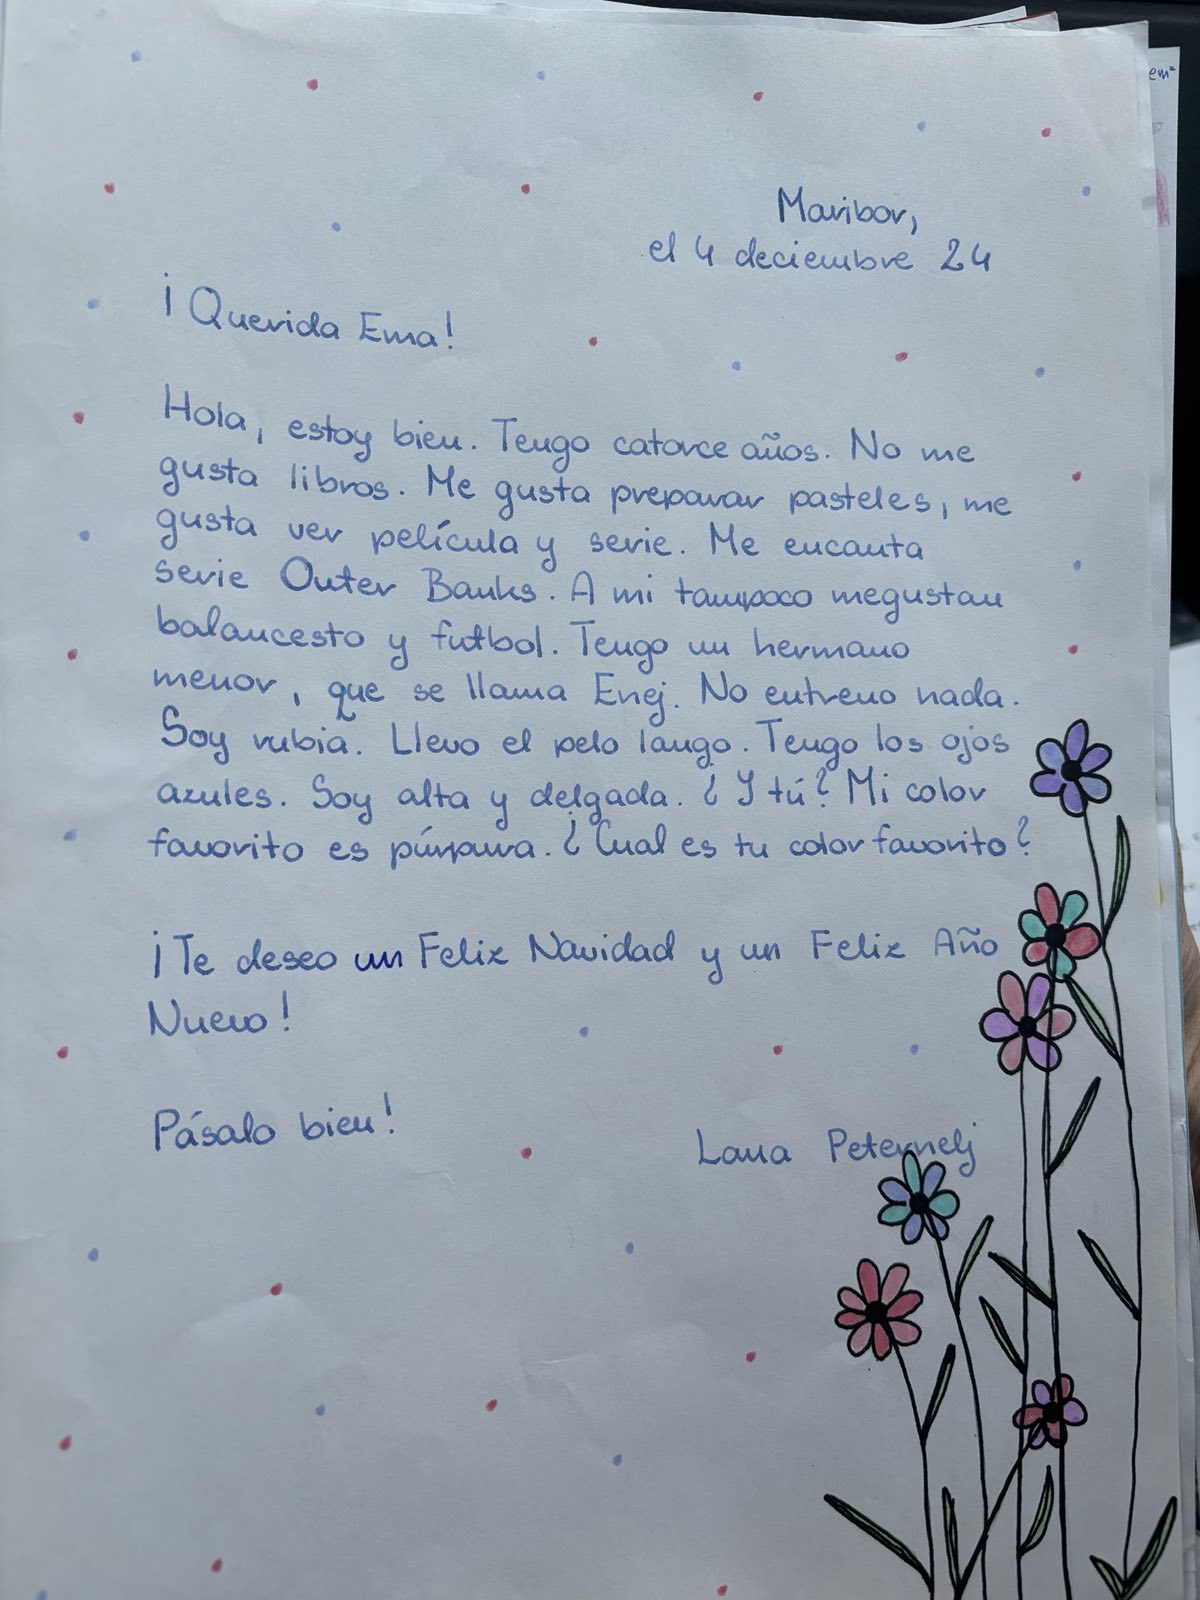 em=
Maribor,
el 4 deciembre 24
¡Querida Ema!
Hola, estoy bien. Tengo catorce años. No me
gusta libros. Me gusta preparar pasteles, me
gusta ver película y serie. Me encanta
serie Outer Banks. A mi tampoco megustan
balancesto y futbol. Tengo un hermano
menor, que se llama Enej. No entreno nada.
Soy rubia. Llevo el pelo lango. Tengo los ojos
azules. Soy alta y delgada. ¿Y tú? Mi color
favorito es púrpura. ¿Cual es tu color favorito?
¡Te deseo un Feliz Navidad y un Feliz Año
Nuevo!
Pásalo bien!
Lana Peternelj